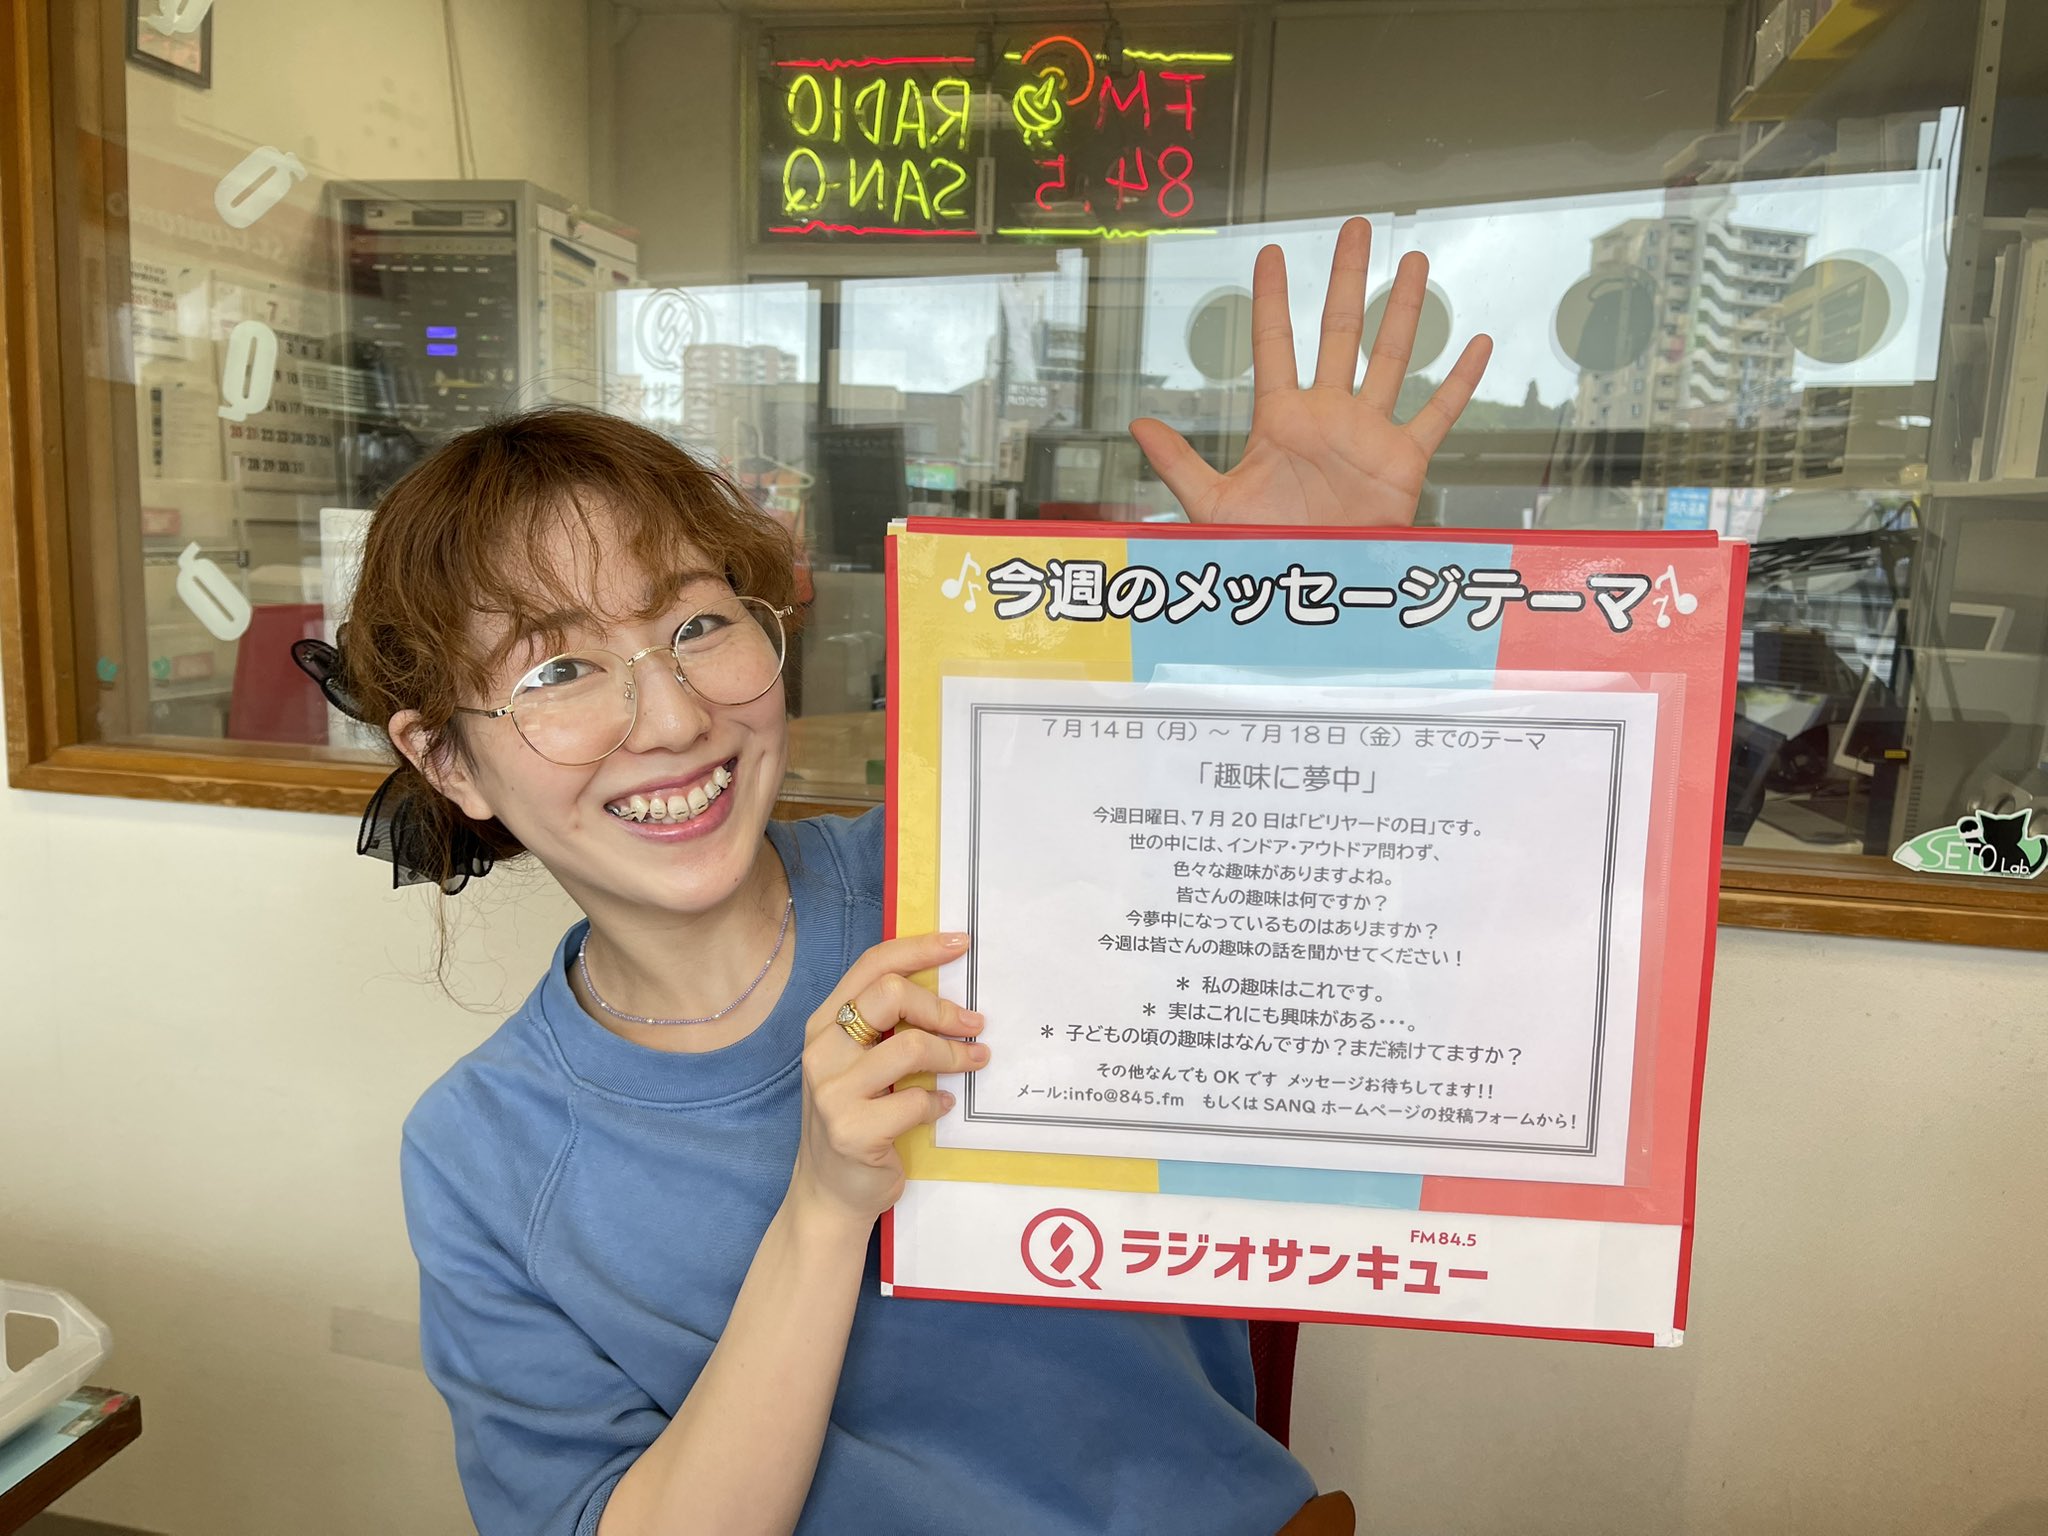 RADIO
SAN-Q
FM
84.5
7
3 4 5
20 21 22 23 24 25 26
28 29 30 31
今週のメッセージテーマ
7月14日（月）～7月18日（金）までのテーマ
「趣味に夢中」
今週日曜日、7月20日は「ビリヤードの日」です。
世の中には、インドア・アウトドア問わず、
色々な趣味がありますよね。
皆さんの趣味は何ですか？
今夢中になっているものはありますか？
今週は皆さんの趣味の話を聞かせてください！
＊ 私の趣味はこれです。
＊ 実はこれにも興味がある・・・。
＊ 子どもの頃の趣味はなんですか？まだ続けてますか？
その他なんでもOKです メッセージお待ちしてます！！
メール：info@845.fm もしくはSANQホームページの投稿フォームから！
FM84.5
ラジオサンキュー
SETO Lab.